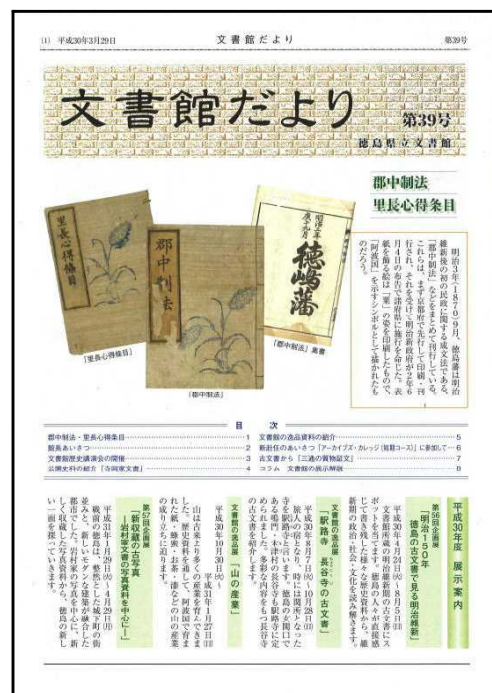 (1) 平成30年3月29日
文書館だより
第39号
文書館だより
第39号
徳島県立文書館
郡中制法
里長心得条目
明治3年(1870)9月、徳島藩は明治
維新後の初の民政に関する成文法である、
「郡中制法」などをまとめて刊行している。
これらは、まず京都府で先行して印刷・刊
行され、それを受けて明治新政府が2年6
月4日の布告で諸府県に施行を命じた。表
紙を飾る絵は「粟」の姿を印刷したもので、
「阿波国」を示すシンボルとして描かれたも
のだろう。
里長心得條目
郡中制法
徳嶋藩
「里長心得条目」
「郡中制法」
「郡中制法」裏書
目 次
郡中制法・里長心得条目 1
館長あいさつ 2
文書館歴史講演会の開催 3
公開史料の紹介「寺岡家文書」 4
文書館の逸品資料の紹介 5
新赴任のあいさつ「アーカイブズ・カレッジ(短期コース)」に参加して 6
古文書から「三通の質物証文」 7
コラム 文書館の展示解説 8
平成30年度 展示案内
第56回企画展
「明治150年
徳島の古文書で見る明治維新」
平成30年4月24日(火)~8月5日(日)
文書館所蔵の明治維新期の古文書にス
ポットを当てます。徳島の人々が直接感
じて書き残した様々な歴史資料から、維
新期の政治・社会・文化を読み解きます。
文書館の逸品展
「駅路寺 長谷寺の古文書」
平成30年8月7日(火)~10月28日(日)
旅人の宿となり、時には関所となった
寺を駅路寺と言います。徳島の玄関口で
ある鳴門・木津村の長谷寺も駅路寺に定
められました。多彩な内容をもつ長谷寺
の古文書を紹介します。
文書館の逸品展「山の産業」
平成30年10月30日(火)
~平成31年1月27日(日)
山は古来より多くの産業を育んできま
した。歴史資料を通して、阿波国で育ま
れた紙・蜂蜜・お茶・漆などの山の産業
の成り立ちに迫ります。
第57回企画展
「新収蔵の古写真
―岩村家文書の写真資料を中心に―」
平成31年1月29日(火)~4月29日(月)
戦前の徳島は、整然とした城下町の街
並みと、新しいモダンな建築が融合した
都市でした。岩村家の写真を中心に、新
しく収蔵した写真資料から、徳島の新し
い一面を探っていきます。